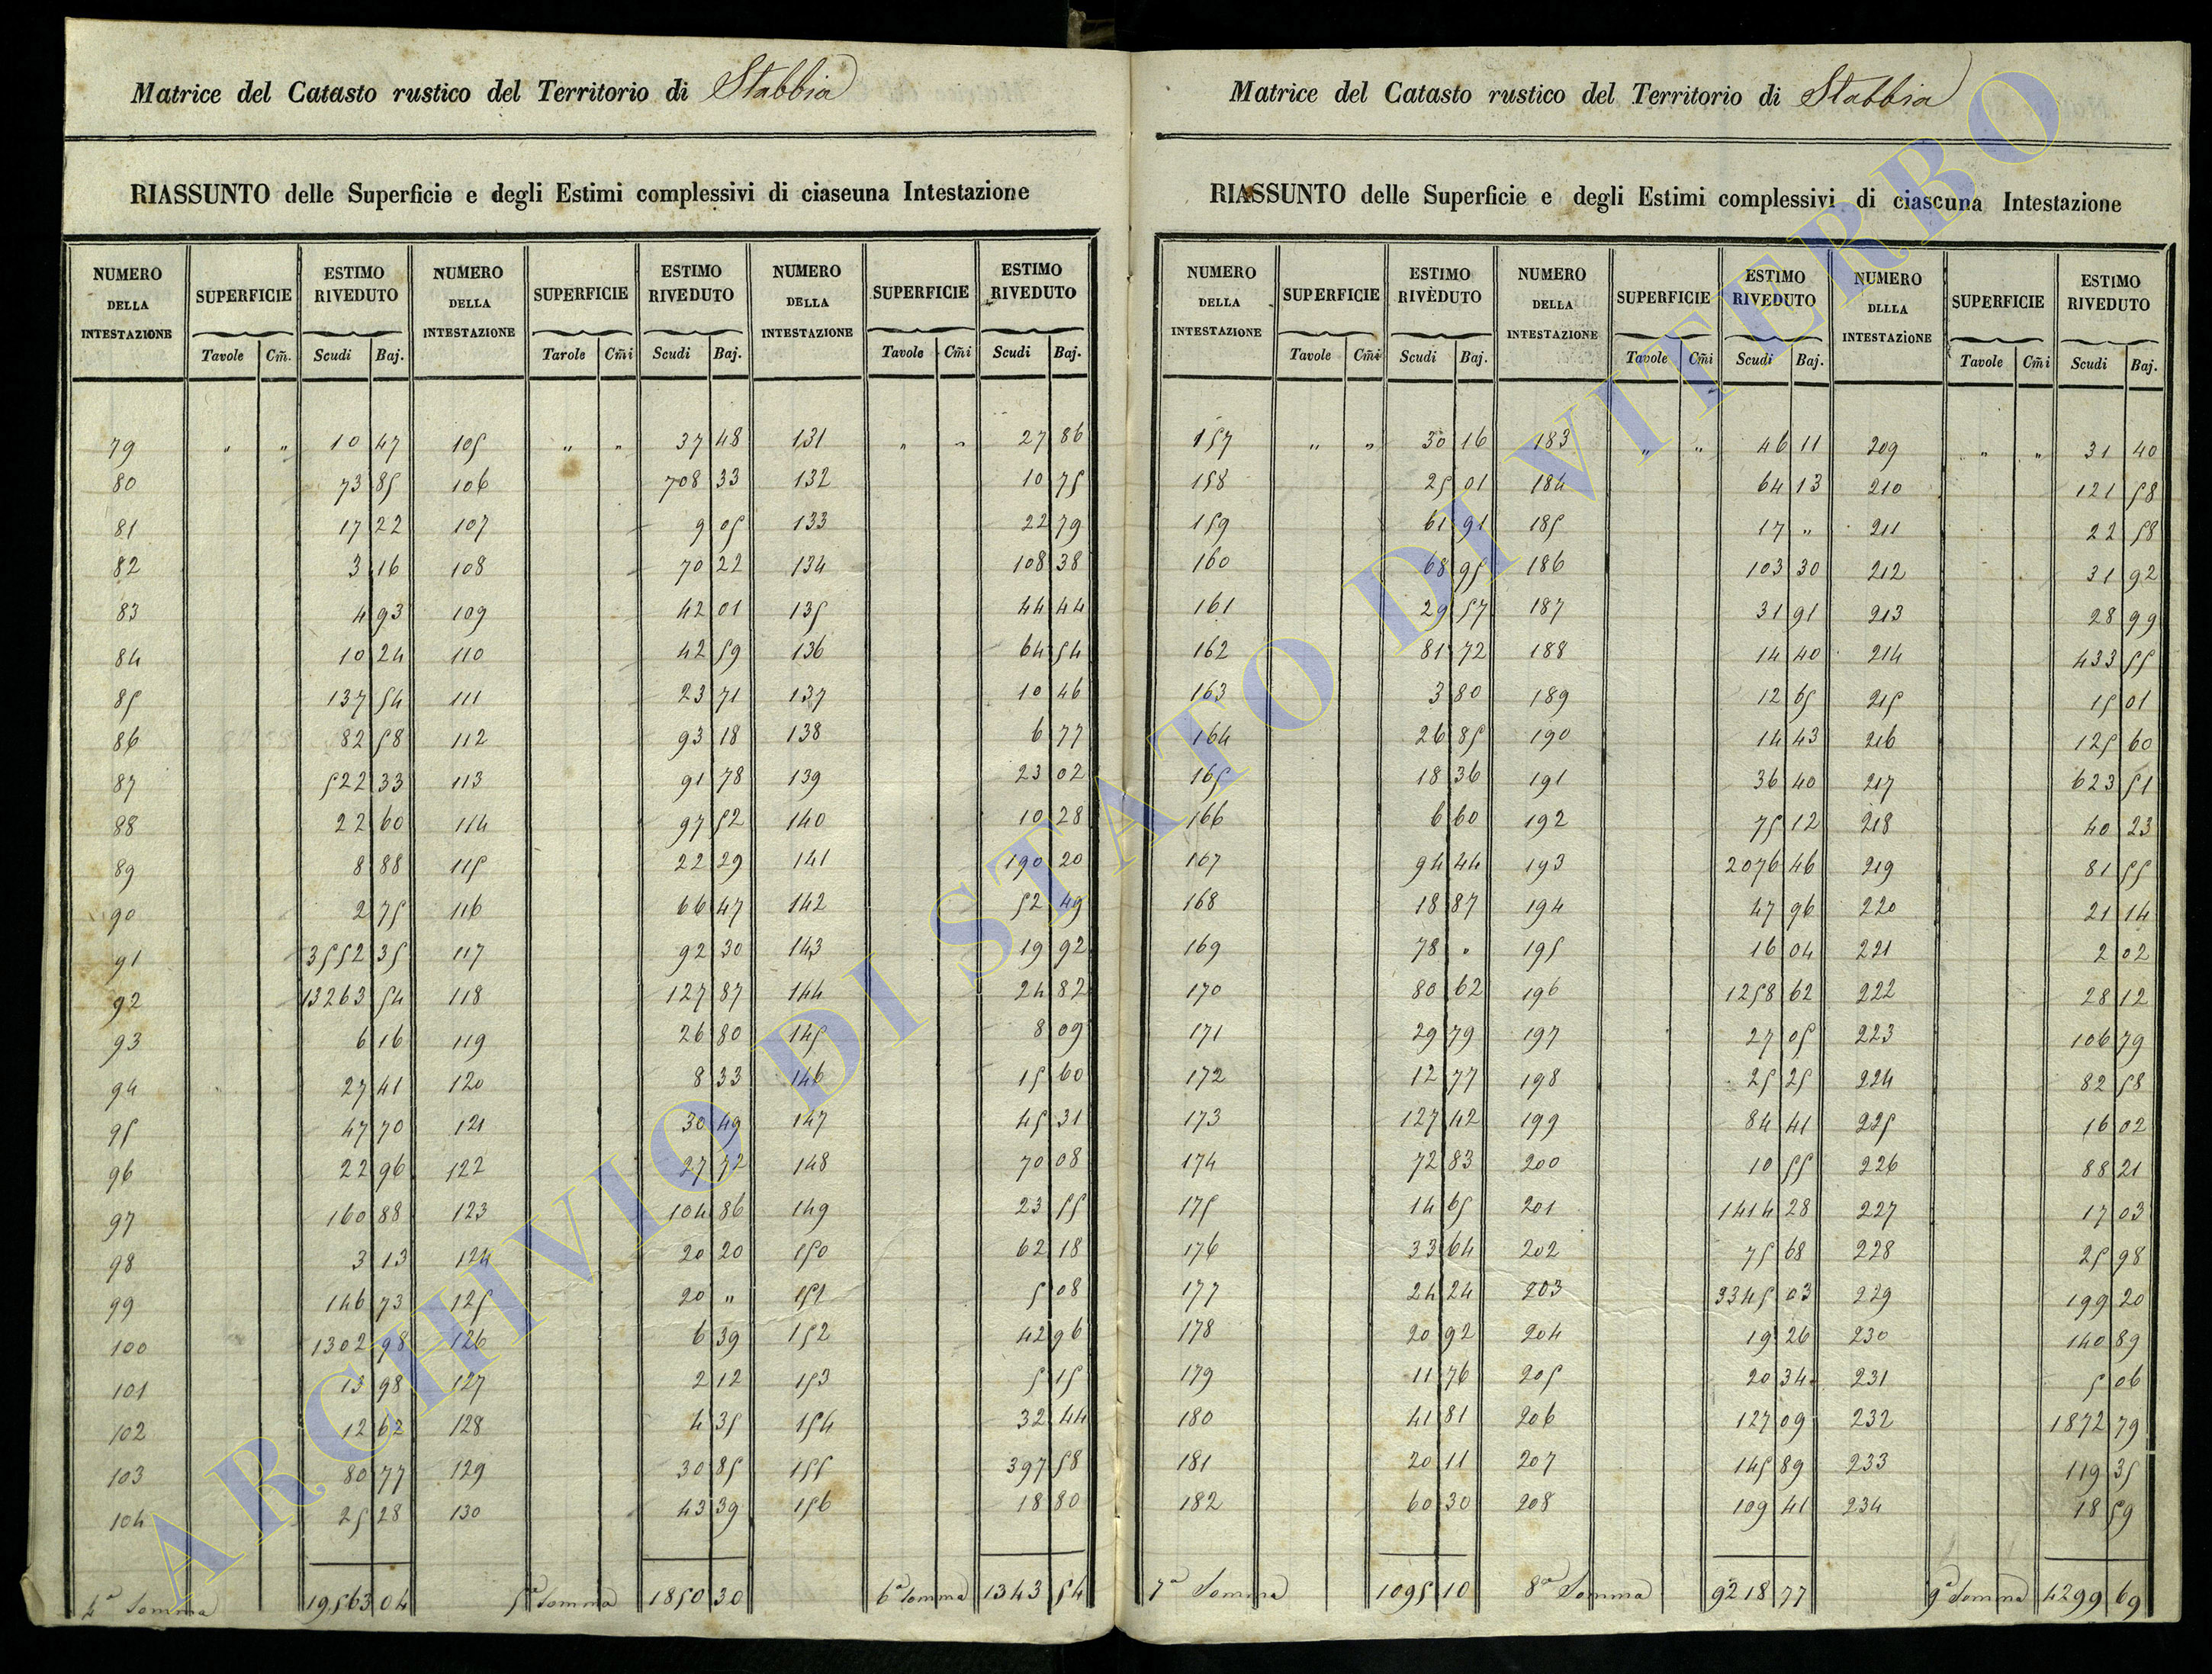 Matrice del Catasto rustico del Territorio di Stabbia
RIASSUNTO delle Superficie e degli Estimi complessivi di ciaseuna Intestazione
NUMERO DELLA INTESTAZIONE SUPERFICIE ESTIMO RIVEDUTO NUMERO DELLA INTESTAZIONE SUPERFICIE ESTIMO RIVEDUTO NUMERO DELLA INTESTAZIONE SUPERFICIE ESTIMO RIVEDUTO
Tavole Cm̃. Scudi Baj. Tarole Cm̃i Scudi Baj. Tavole Cm̃i Scudi Baj.
79 " " 10 47 105 " " 37 48 131 " " 27 86
80 73 85 106 708 33 132 10 75
81 17 22 107 9 05 133 22 79
82 3 16 108 70 22 134 108 38
83 4 93 109 42 01 135 44 44
84 10 24 110 42 59 136 64 54
85 137 54 111 23 71 137 10 46
86 82 58 112 93 18 138 6 77
87 522 33 113 91 78 139 23 02
88 22 60 114 97 52 140 10 28
89 8 88 115 22 29 141 190 20
90 2 75 116 66 47 142 52 49
91 3552 35 117 92 30 143 19 92
92 13263 54 118 127 87 144 24 82
93 6 16 119 26 80 145 8 09
94 27 41 120 8 33 146 15 60
95 47 70 121 30 49 147 45 31
96 22 96 122 27 72 148 70 08
97 160 88 123 104 86 149 23 55
98 3 13 124 20 20 150 62 18
99 146 73 125 20 " 151 5 08
100 1302 98 126 6 39 152 42 96
101 13 98 127 2 12 153 5 15
102 12 62 128 4 35 154 32 44
103 80 77 129 30 85 155 397 58
104 25 28 130 43 39 156 18 80
4ª Somma 19563 04 5ª Somma 1850 30 6ª Somma 1343 54
Matrice del Catasto rustico del Territorio di Stabbia
RIASSUNTO delle Superficie e degli Estimi complessivi di ciascuna Intestazione
NUMERO DELLA INTESTAZIONE SUPERFICIE ESTIMO RIVEDUTO NUMERO DELLA INTESTAZIONE SUPERFICIE ESTIMO RIVEDUTO NUMERO DLLLA INTESTAZIONE SUPERFICIE ESTIMO RIVEDUTO
Tavole Cm̃i Scudi Baj. Tavole Cm̃i Scudi Baj. Tavole Cm̃i Scudi Baj.
157 " " 30 16 183 " " 46 11 209 " " 31 40
158 25 01 184 64 13 210 121 58
159 61 91 185 17 " 211 22 58
160 68 95 186 103 30 212 31 92
161 29 57 187 31 91 213 28 99
162 81 72 188 14 40 214 433 55
163 3 80 189 12 65 215 15 01
164 26 85 190 14 43 216 125 60
165 18 36 191 36 40 217 623 51
166 6 60 192 75 12 218 40 23
167 94 44 193 2076 46 219 81 55
168 18 87 194 47 96 220 21 14
169 78 " 195 16 04 221 2 02
170 80 62 196 1258 62 222 28 12
171 29 79 197 27 05 223 106 79
172 12 77 198 25 25 224 82 58
173 127 42 199 84 41 225 16 02
174 72 83 200 10 55 226 88 21
175 14 65 201 1414 28 227 17 03
176 33 64 202 75 68 228 25 98
177 24 24 203 3345 03 229 199 20
178 20 92 204 19 26 230 140 89
179 11 76 205 20 34 231 5 06
180 41 81 206 127 09 232 1872 79
181 20 11 207 145 89 233 119 35
182 60 30 208 109 41 234 18 59
7ª Somma 1095 10 8ª Somma 9218 77 9ª Somma 4299 69
ARCHIVIO DI STATO DI VITERBO